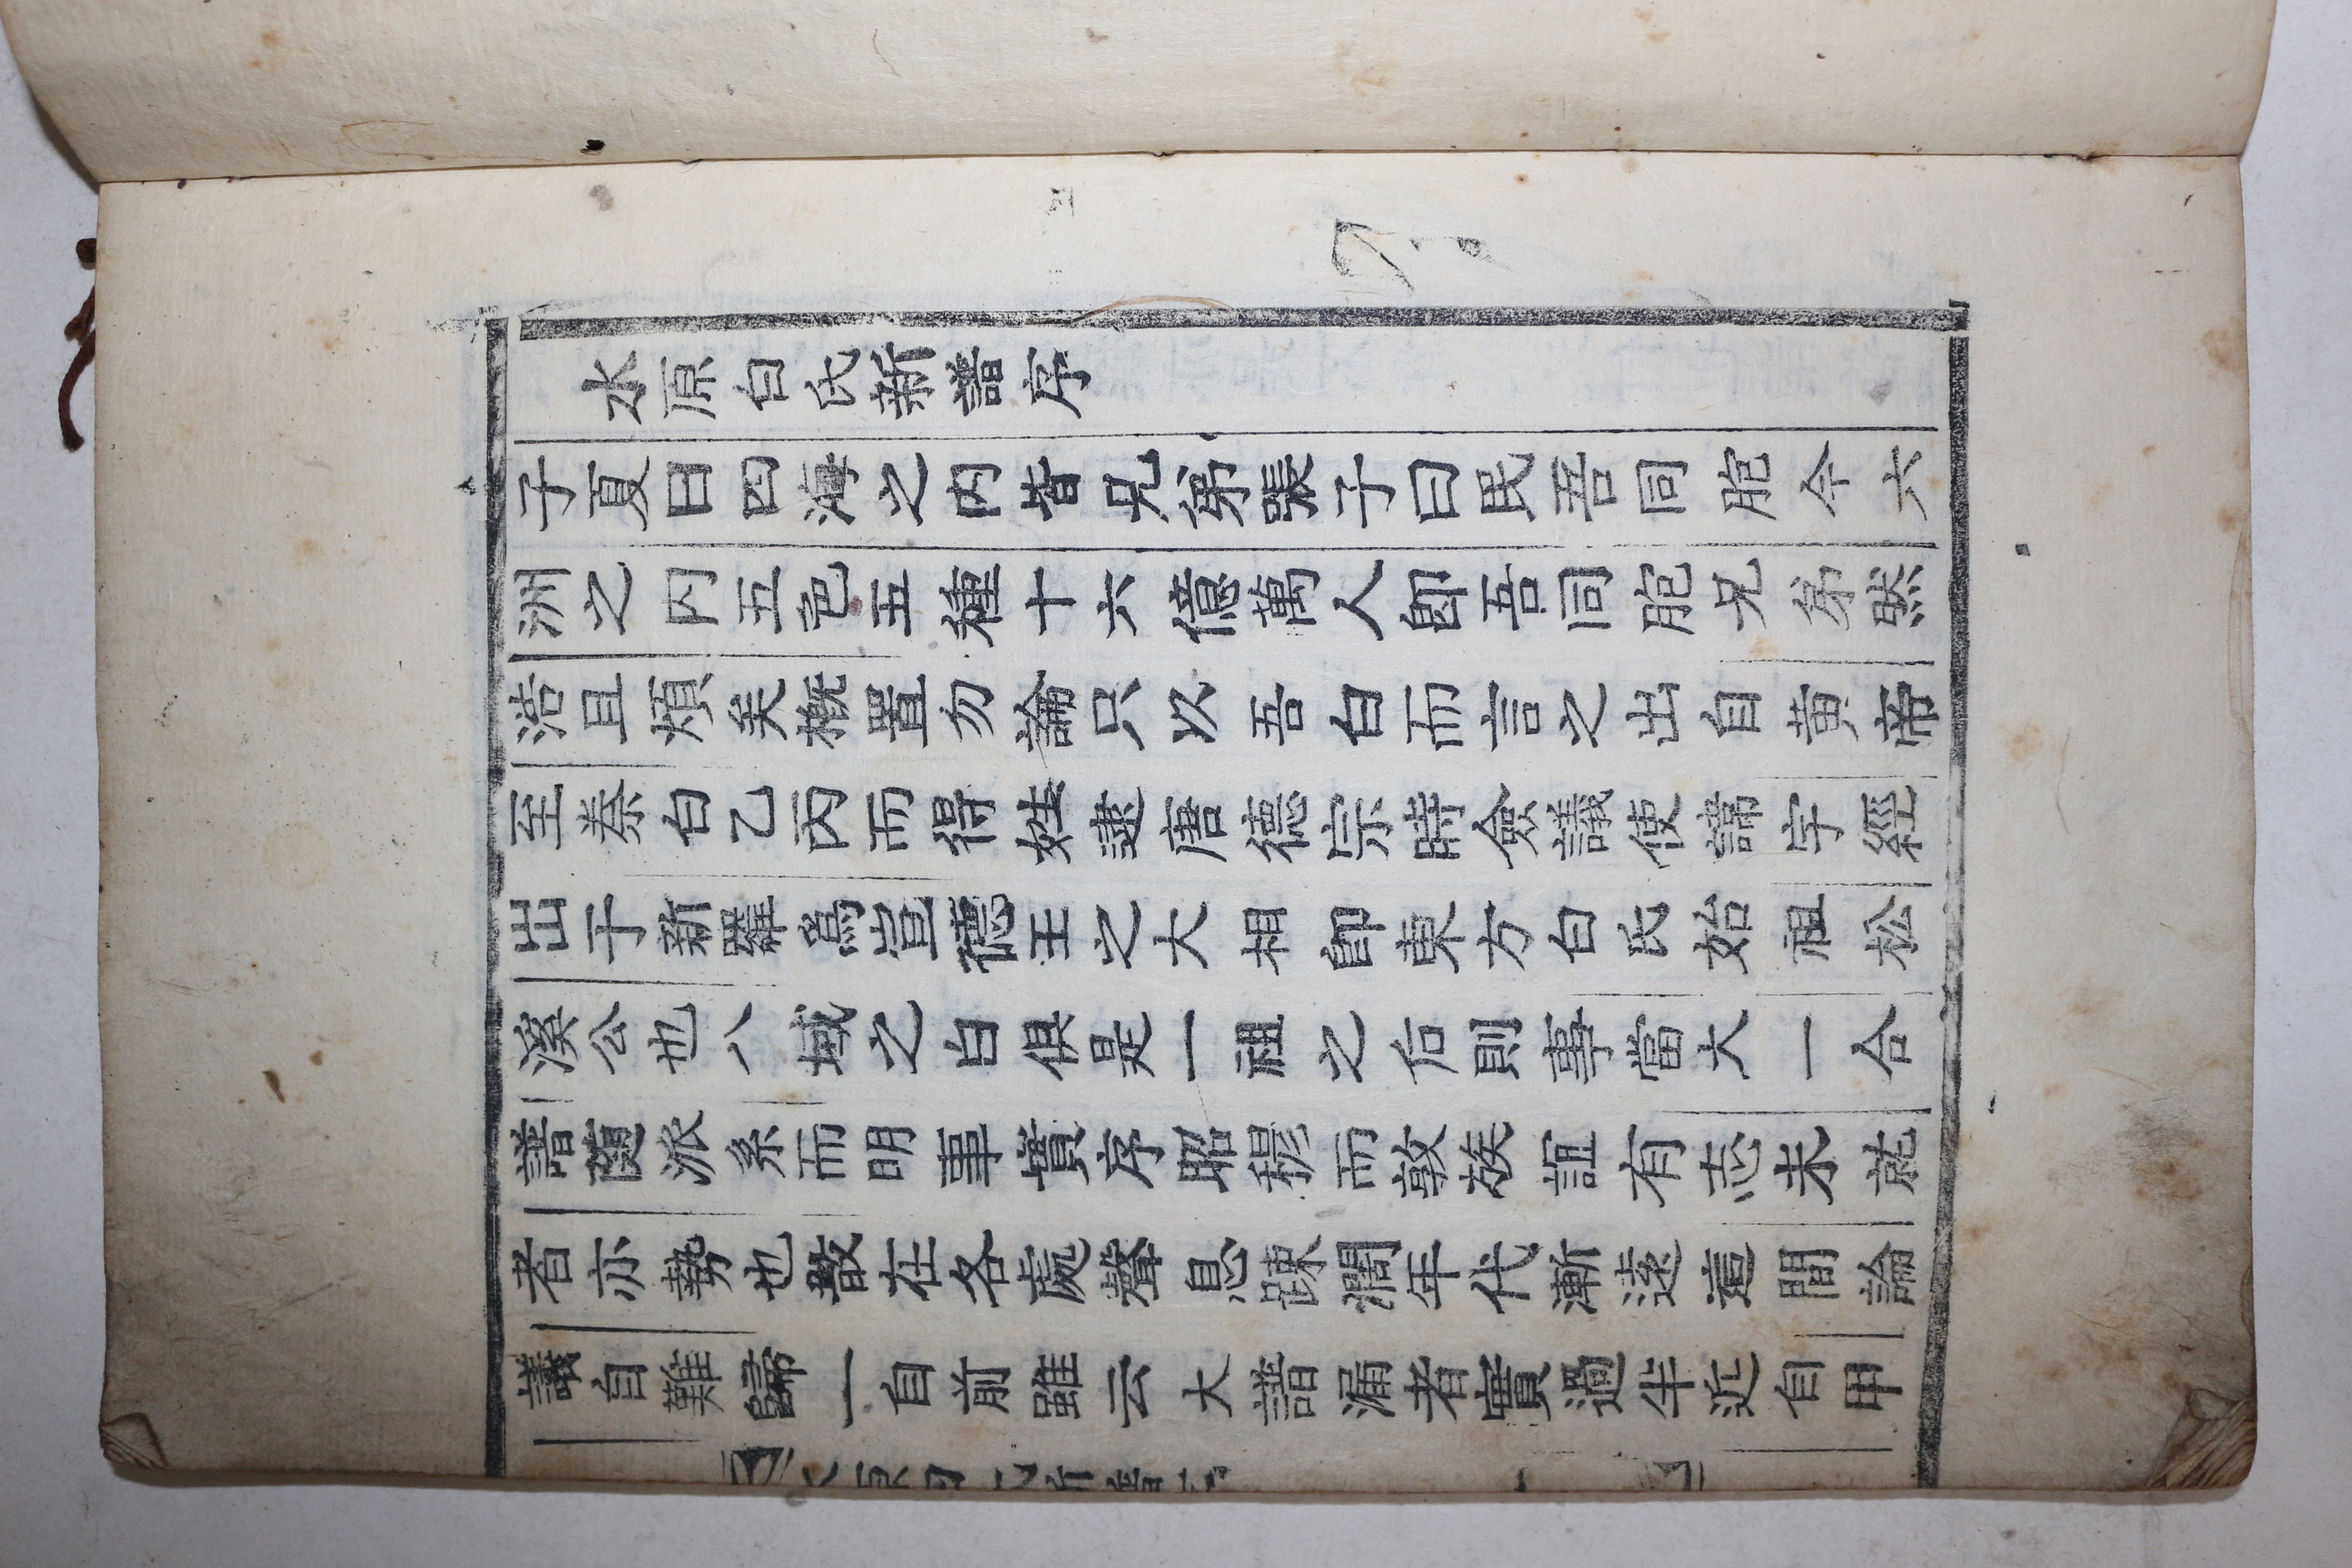 水原白氏新譜序
子夏曰四海之内皆兄弟張子曰民吾同胞今六
洲之内五色五種十六億萬人卽吾同胞兄弟然
浩且煩矣槪置勿論只以吾白而言之出自黃帝
至秦白乙丙而得姓逮唐德宗時僉議使諱宇經
出于新羅爲宣德王之大相卽東方白氏始祖松
溪公也八域之白俱是一祖之后則事當大一合
譜隨派系而明事實序昭穆而敦族誼有志未就
者亦勢也散在各處聲息踈濶年代漸遠意間論
議自難歸一自前雖云大譜漏者實過半近自甲